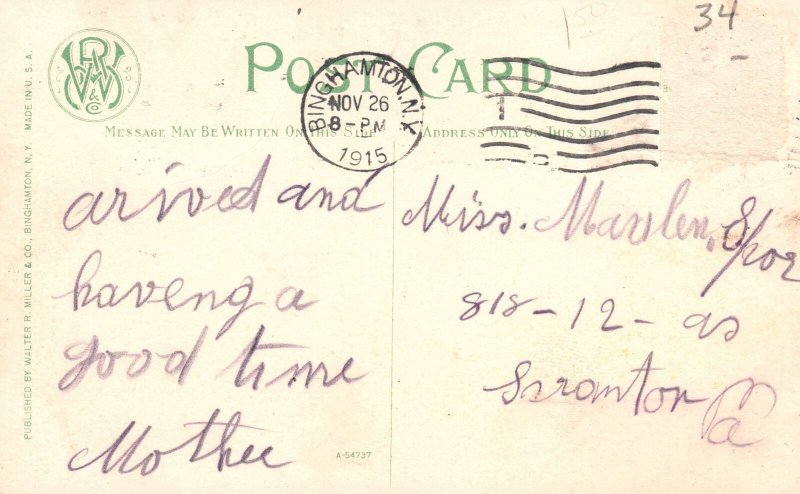 34
POST CARD
WRM & Co
BINGHAMTON, N.Y.
NOV 26
8-PM
1915
MESSAGE MAY BE WRITTEN ON THIS SIDE
ADDRESS ONLY ON THIS SIDE
arived and
haveng a
good time
Mother
Miss. Marlen, Spor
818-12-as
Scranton Pa
A-54737
PUBLISHED BY WALTER R. MILLER & CO., BINGHAMTON, N.Y. MADE IN U.S.A.